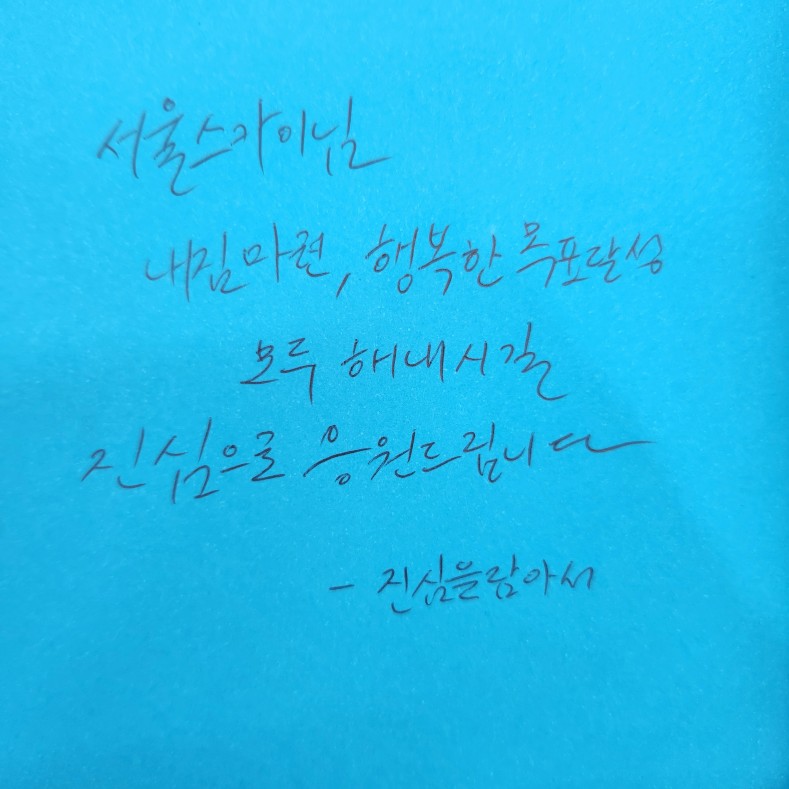 서울스카이님
내집마련, 행복한 목표달성
모두 해내시길
진심으로 응원드립니다
- 진심을담아서